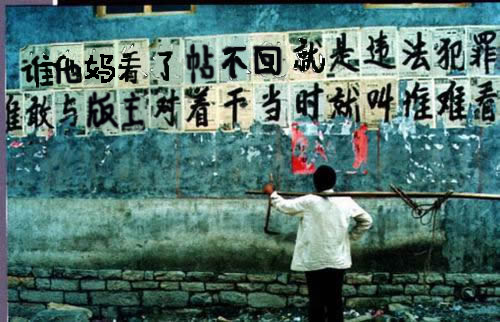 谁他妈看了帖不回就是违法犯罪
谁敢与版主对着干当时就叫谁难看